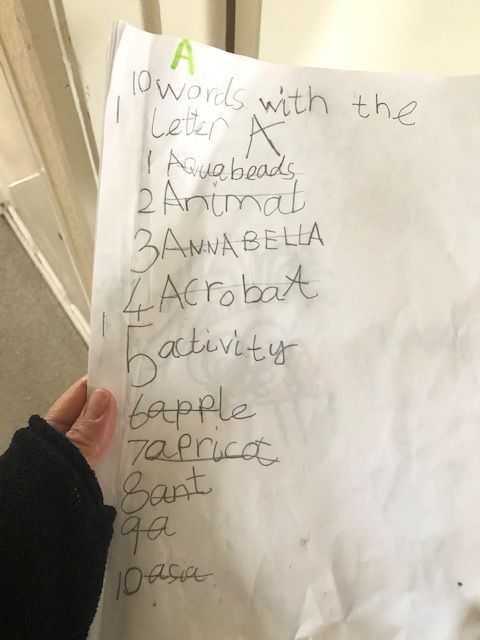 A
10 words with the
1
letter A
1 Aquabeads
2 Animal
3 ANNABELLA
4 Acrobat
5 activity
6 apple
7 apricot
8 ant
9 a
10 asa